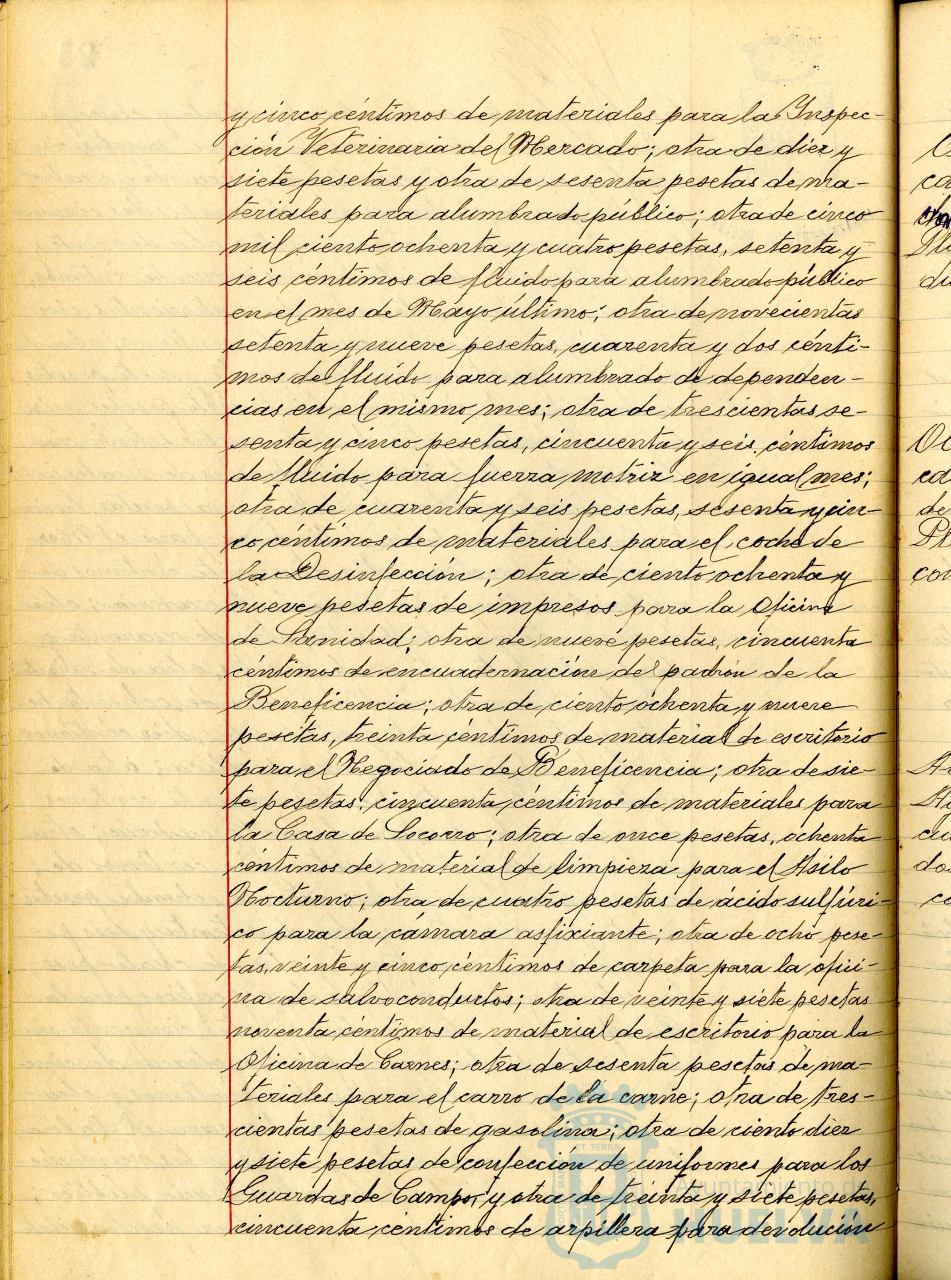 y cinco céntimos de materiales para la Inspec-
ción Veterinaria del Mercado; otra de diez y
siete pesetas y otra de sesenta pesetas de ma-
teriales para alumbrado público; otra de cinco
mil ciento ochenta y cuatro pesetas, setenta y
seis céntimos de fluido para alumbrado público
en el mes de Mayo último; otra de novecientas
setenta y nueve pesetas, cuarenta y dos cénti-
mos de fluído para alumbrado de dependen-
cias en el mismo mes; otra de trescientas se-
senta y cinco pesetas, cincuenta y seis céntimos
de fluido para fuerza motriz en igual mes;
otra de cuarenta y seis pesetas, sesenta y cin-
co céntimos de materiales para el coche de
la Desinfección; otra de ciento ochenta y
nueve pesetas de impresos para la Oficina
de Sanidad; otra de nueve pesetas, cincuenta
céntimos de encuadernación del padrón de la
Beneficencia; otra de ciento ochenta y nueve
pesetas, treinta céntimos de material de escritorio
para el Negociado de Beneficencia; otra de sie-
te pesetas, cincuenta céntimos de materiales para
la Casa de Socorro; otra de once pesetas, ochenta
céntimos de material de limpieza para el Asilo
Nocturno; otra de cuatro pesetas de ácido sulfúri-
co para la cámara asfixiante; otra de ocho pese-
tas, veinte y cinco céntimos de carpeta para la ofici-
na de salvoconductos; otra de veinte y siete pesetas
noventa céntimos de material de escritorio para la
Oficina de Carnes; otra de sesenta pesetas de ma-
teriales para el carro de la carne; otra de tres-
cientas pesetas de gasolina; otra de ciento diez
y siete pesetas de confección de uniformes para los
Guardas de Campo; y otra de treinta y siete pesetas,
cincuenta céntimos de arpillera para devolución
Ayuntamiento de
HUELVA